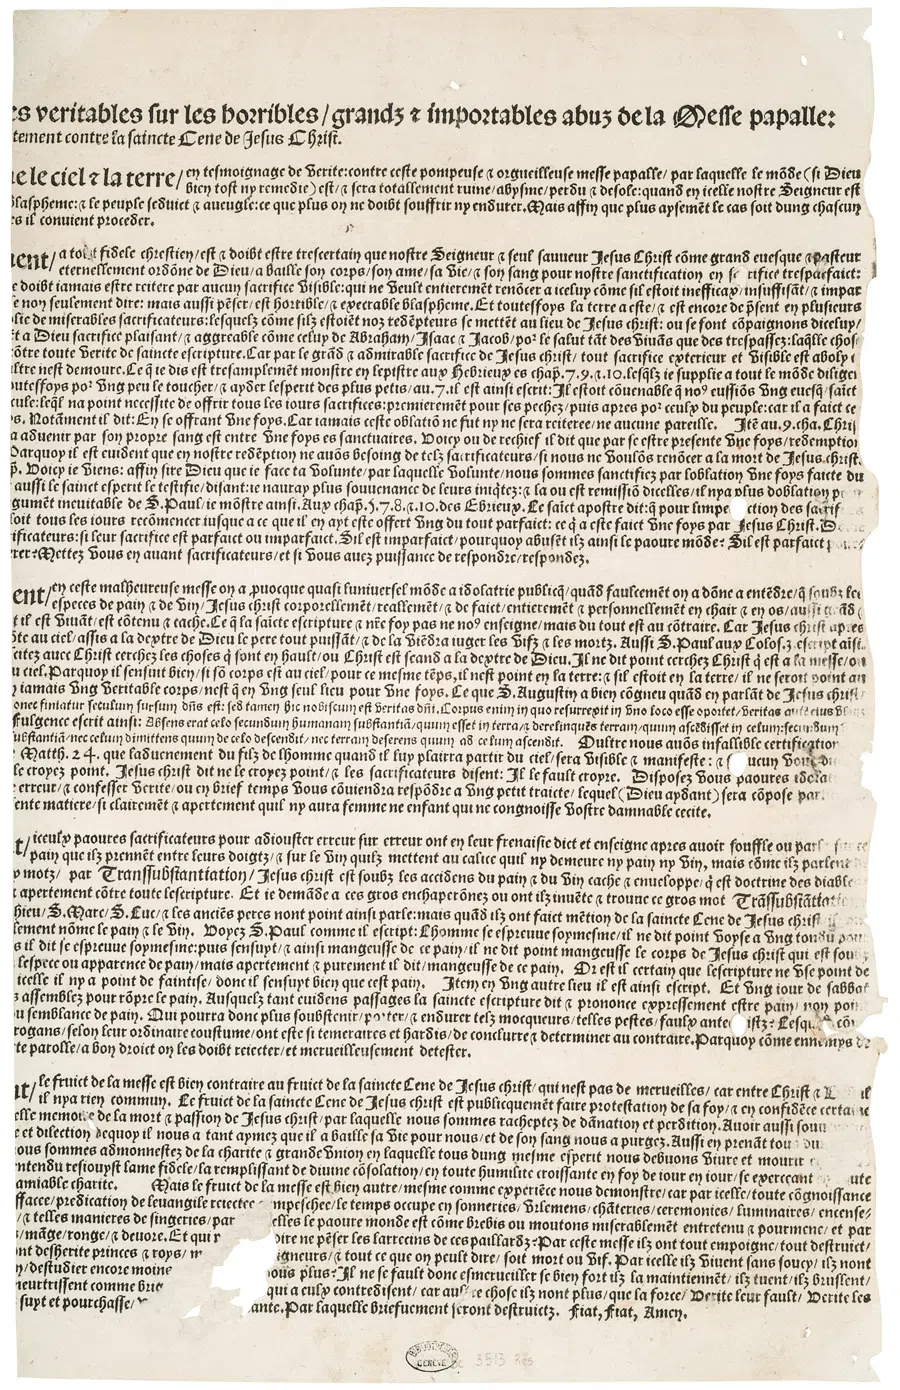 es veritables sur les horribles/grandz ⁊ importables abuz de la Messe papalle:
tement contre la saincte Cene de Jesus Christ.
le ciel ⁊ la terre/ en tesmoignage de Verite: contre ceste pompeuse ⁊ orgueilleuse messe papalle/ par laquelle le mõde (si Dieu
bien tost ny remedie) est/ ⁊ sera totallement ruine/ abysme/ perdu ⁊ desole: quand en icelle nostre Seigneur est
blaspheme: ⁊ le peuple seduict ⁊ aueugle: ce que plus on ne doibt souffrir ny endurer. Mais affin que plus aysemẽt le cas soit dung chascun
s il conuient proceder.
ent/ a tout fidele chrestien/ est ⁊ doibt estre trescertain que nostre Seigneur ⁊ seul sauueur Jesus Christ cõme grand euesque ⁊ pasteur
eternellement ordõne de Dieu/ a baille son corps/ son ame/ sa Vie/ ⁊ son sang pour nostre sanctification en sacrifice tresparfaict:
e doibt iamais estre reitere par aucun sacrifice Visible: qui ne Veult entierement renõcer a iceluy cõme sil estoit inefficax/ insuffisãt/ ⁊ impar
e non seulement dire: mais aussi pẽser/ est horrible/ ⁊ execrable blaspheme. Et toutesfoys la terre a este/ ⁊ est encore de p̃sent en plusieurs
lie de miserables sacrificateurs: lesquelz cõme silz estoiẽt noz redẽpteurs se mettẽt au lieu de Jesus christ: ou se font cõpaignons dicelup/
t a Dieu sacrifice plaisant/ ⁊ aggreable cõme celuy de Abraham/ Isaac ⁊ Jacob/ po² le salut tãt des Viuãs que des trespassez: laq̃lle chose
õtre toute Verite de saincte escripture. Car par le grãd ⁊ admirable sacrifice de Jesus christ/ tout sacrifice exterieur et Visible est aboly ⁊
ultre nest demoure. Ce q̃ ie dis est tresamplemẽt monstre en lepistre aux Hebrieux es chap̃. 7. 9. ⁊. 10. lesq̃lz ie supplie a tout le mõde diligem
outesfoys po² Vng peu le toucher/ ⁊ ayder lesperit des plus petis/ au. 7. il est ainsi escript: Il estoit cõuenable q̃ no⁹ eussiõs Vng euesq̃/ saict
cule: leq̃l na point necessite de offrir tous les iours sacrifices: premieremẽt pour ses pechez/ puis apres po² ceulx du peuple: car il a faict ce
s. Notãment il dit: En se offrant Vne foys. Car iamais ceste oblatiõ ne fut ny ne sera reiteree/ ne aucune pareille. Itẽ au. 9. cha. Chri
a aduenir par son propre sang est entre Vne foys es sanctuaires. Voicy ou de rechief il dit que par se estre presente Vne foys/ redemption
Parquoy il est euident que en nostre redẽption ne auõs besoing de telz sacrificateurs/ si nous ne Voulõs renõcer a la mort de Jesus christ.
p̃. Voicy ie Viens: affin sire Dieu que ie face ta Volunte/ par laquelle Volunte/ nous sommes sanctifiez par loblation Vne foys faicte du
aussi le sainct esperit le testifie/ disant: ie nauray plus souuenance de leurs iniq̃tez: ⁊ la ou est remissiõ dicelles/ il nya plus doblation
gument ineuitable de S. Paul/ ie mõstre ainsi. Aux chap̃. 5. 7. 8. ⁊. 10. des Ebrieux. Le saict apostre dit: q̃ pour limpe ction des sacrif
soit tous les iours recõmencer iusque a ce que il en ayt este offert Vng du tout parfaict: ce q̃ a este faict Vne foys par Jesus Christ.
ificateurs: si leur sacrifice est parfaict ou imparfaict. Sil est imparfaict/ pourquoy abusẽt ilz ainsi le paoure mõde? Sil est parfaict
rer? Mettez Vous en auant sacrificateurs/ et si Vous auez puissance de respondre/ respondez.
ent/ en ceste malheureuse messe on a prouocque quasi luniuersel mõde a idolatrie publicq̃/ quãd faulcemẽt on a dõne a entẽdre/ q̃ soubz les
especes de pain ⁊ de Vin/ Jesus christ corporellemẽt/ reallemẽt/ ⁊ de faict/ entieremẽt ⁊ personnellemẽt en chair ⁊ en os/ aussi grãd ⁊
t il est Viuãt/ est cõtenu ⁊ cache. Ce q̃ la saicte escripture ⁊ nr̃e foy pas ne no⁹ enseigne/ mais du tout est au cõtraire. Car Jesus christ apres
õte au ciel/ assis a la dextre de Dieu le pere tout puissãt/ ⁊ de la Viẽdra iuger les Vifz ⁊ les mortz. Aussi S. Paul aux Colos. 3. escript aisi.
citez auec Christ cerchez les choses q̃ sont en hault/ ou Christ est seand a la dextre de Dieu. Il ne dit point cerchez Christ q̃ est a la messe/ ou
u ciel. Parquoy il sensuit bien/ si sõ corps est au ciel/ pour ce mesme tẽps, il nest point en la terre: ⁊ sil estoit en la terre/ il ne seroit point au
iamais Vng Veritable corps/ nest q̃ en Vng seul lieu pour Vne foys. Ce que S. Augustin a bien cõgneu quãd en parlãt de Jesus christ/
onec finiatur seculum sursum dñs est: sed tamen hic nobiscum est veritas dñi. Corpus enim in quo resurrexit in vno loco esse oportet/ veritas
fulgence escrit ainsi: Absens erat celo secundum humanam substantiã/ quum esset in terra/ ⁊ derelinquẽs terram/ quum ascẽdisset in celum: secundum
ubstantiã/ nec celum dimittens quum de celo descendit/ nec terram deserens quum ad celum ascendit. Oultre nous auõs infallible certification
Matth. 24. que laduenement du filz de lhomme quand il luy plaira partir du ciel/ sera Visible ⁊ manifeste: ⁊ ucun Vous
le croyez point. Jesus christ dit ne le croyez point/ ⁊ les sacrificateurs disent: Il le fault croyre. Disposez Vous paoures
erreur/ ⁊ confesser Verite/ ou en brief temps Vous cõuiendra respõdre a Vng petit traicte/ lequel (Dieu aydant) sera cõpose par.
ente matiere/ si clairemẽt ⁊ apertement quil ny aura femme ne enfant qui ne congnoisse Vostre damnable cecite.
t/ iceulx paoures sacrificateurs pour adiouster erreur sur erreur ont en leur frenaisie dict et enseigne apres auoir souffle ou
pain que ilz prennẽt entre leurs doigtz/ ⁊ sur le Vin quilz mettent au calice quil ny demeure ny pain ny Vin, mais cõme ilz parlent
motz/ par Transsubstantiation/ Jesus christ est soubz les accidens du pain ⁊ du Vin cache ⁊ enueloppe/ q̃ est doctrine des diable
apertement cõtre toute lescripture. Et ie demãde a ces gros enchaperõnez ou ont ilz inuẽte ⁊ trouue ce gros mot Transsubstãtia
hieu/ S. Marc/ S. Luc/ ⁊ les anciẽs peres nont point ainsi parle: mais quãd ilz ont faict mẽtion de la saincte Cene de Jesus christ
lement nõme le pain ⁊ le Vin. Voyez S. Paul comme il escript: Lhomme se espreuue soymesme/ il ne dit point Voyse a Vng tondu pour
s il dit se espreuue soymesme: puis sensuyt/ ⁊ ainsi mangeusse de ce pain/ il ne dit point mangeusse le corps de Jesus christ qui est soubz
lespece ou apparence de pain/ mais apertement ⁊ purement il dit/ mangeusse de ce pain. Or est il certain que lescripture ne Vse point de
icelle il ny a point de faintise/ donc il sensuyt bien que cest pain. Item en Vng autre lieu il est ainsi escript. Et Vng iour de sabbat
assemblez pour rõpre le pain. Ausquelz tant euidens passages la saincte escripture dit ⁊ prononce expressement estre pain/ non point
u semblance de pain. Qui pourra donc plus soubstenir/ porter/ ⁊ endurer telz mocqueurs/ telles pestes/ faulx ante istz?
rogans/ selon leur ordinaire coustume/ ont este si temeraires et hardis/ de conclurre ⁊ determiner au contraire. Parquoy cõme ennemys de
te parolle/ a bon droict on les doibt reiecter/ et merueilleusement detester.
t/ le fruict de la messe est bien contraire au fruict de la saincte Cene de Jesus christ/ qui nest pas de merueilles/ car entre Christ ⁊
il nya rien commun. Le fruict de la saincte Cene de Jesus christ est publicquemẽt faire protestation de sa foy/ ⁊ en confidẽce certaine
elle memoire de la mort ⁊ passion de Jesus christ/ par laquelle nous sommes rachetez de dãnation et perdition. Auoir aussi
e et dilection dequoy il nous a tant aymez que il a baille sa Vie pour nous/ et de son sang nous a purgez. Aussi en prenãt
ous sommes admonnestez de la charite ⁊ grande Vnion en laquelle tous dung mesme esperit nous debuons Viure et mourir
ntendu resiouyst lame fidele/ la remplissant de diuine cõsolation/ en toute humilite croissante en foy de iour en iour/ se exerceant ute
amiable charite. Mais le fruict de la messe est bien autre/ mesme comme experiẽce nous demonstre/ car par icelle/ toute cõgnoissance
ffacee/ predication de leuangile reiectee empeschee/ le temps occupe en sonneries/ Vrlemens/ chãteries/ ceremonies/ luminaires/ encense-
/ ⁊ telles manieres de singeries/ par elles le paoure monde est cõme brebis ou moutons miserablemẽt entretenu ⁊ pourmene/ et par
/ mãge/ ronge/ ⁊ deuore. Et qui oire ne pẽser les larrecins de ces paillardz? Par ceste messe ilz ont tout empoigne/ tout destruict/
nt desherite princes ⁊ roys/ igneurs/ ⁊ tout ce que on peult dire/ soit mort ou Vif. Par icelle ilz Viuent sans soucy/ ilz nont
/ destudier encore moins ous plus? Il ne se fault donc esmerueiller se bien fort ilz la maintiennẽt/ ilz tuent/ ilz bruslent/
meurtrissent comme bri qui a eulx contredisent/ car autre chose ilz nont plus/ que la force/ Verite leur fault/ Verite les
supt et pourchasse/ ante. Par laquelle briefuement seront destruictz. Fiat, Fiat, Amen.
GENEVE
3513 Rés